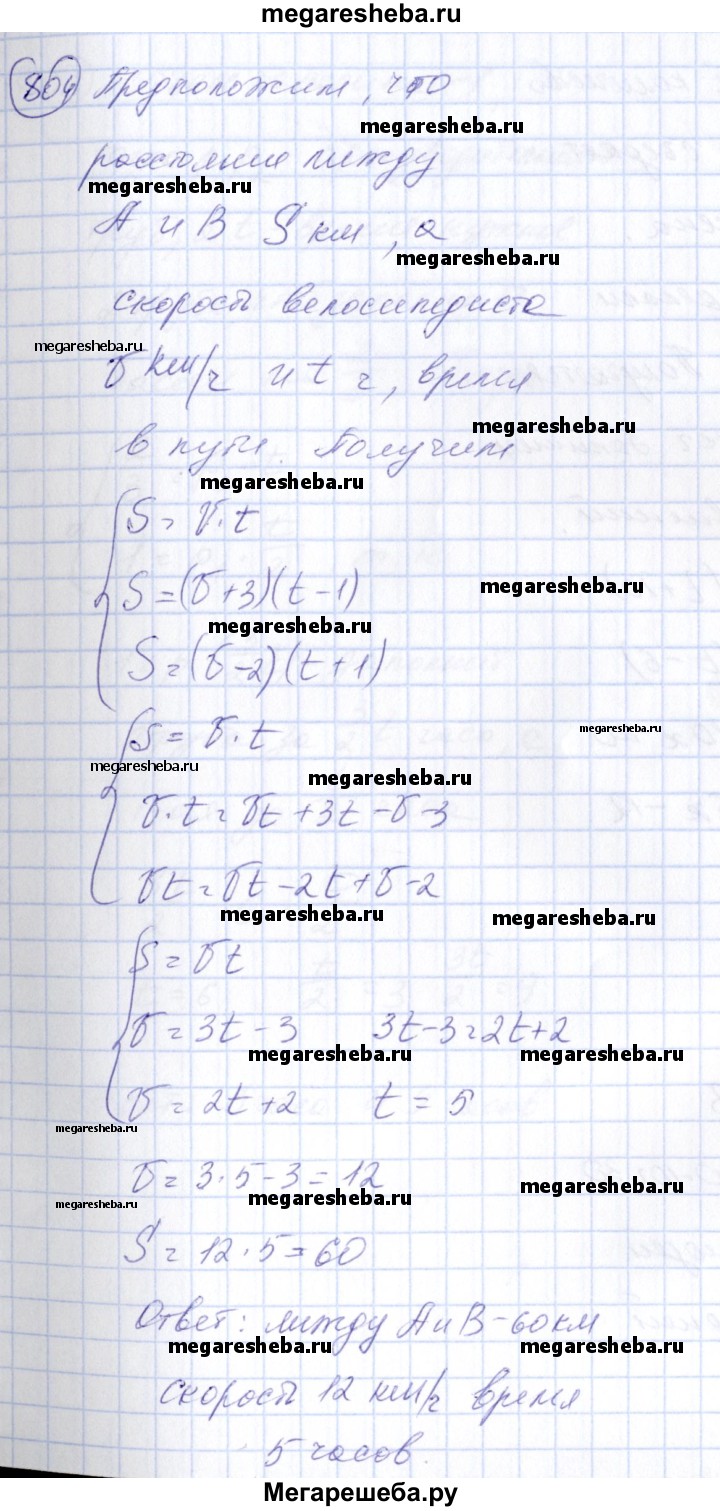 megaresheba.ru
804 Предположим, что
megaresheba.ru
расстояние между
megaresheba.ru
А и В S км, а
megaresheba.ru
скорость велосипедиста
megaresheba.ru
v км/ч и t ч, время
megaresheba.ru
в пути. Получим
megaresheba.ru
S = v·t
megaresheba.ru
S = (v+3)(t-1)
megaresheba.ru
S = (v-2)(t+1)
megaresheba.ru
S = v·t
megaresheba.ru
megaresheba.ru
v·t = vt + 3t - v - 3
vt = vt - 2t + v - 2
megaresheba.ru
megaresheba.ru
S = vt
v = 3t - 3 3t-3=2t+2
megaresheba.ru
megaresheba.ru
v = 2t + 2 t = 5
megaresheba.ru
v = 3·5 - 3 = 12
megaresheba.ru
megaresheba.ru
megaresheba.ru
S = 12·5 = 60
Ответ: между А и В - 60 км
megaresheba.ru
megaresheba.ru
скорость 12 км/ч время
5 часов.
Мегарешеба.ру